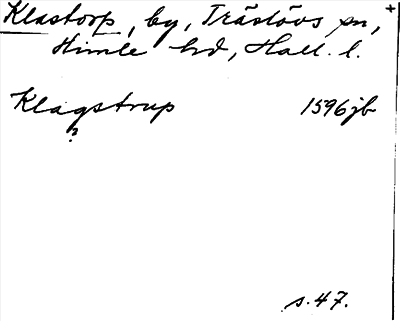 Klastorp, by, Träslövs sn, +
Himle hd, Hall. l.
Klagstrup 1596 jb
?
s. 47.